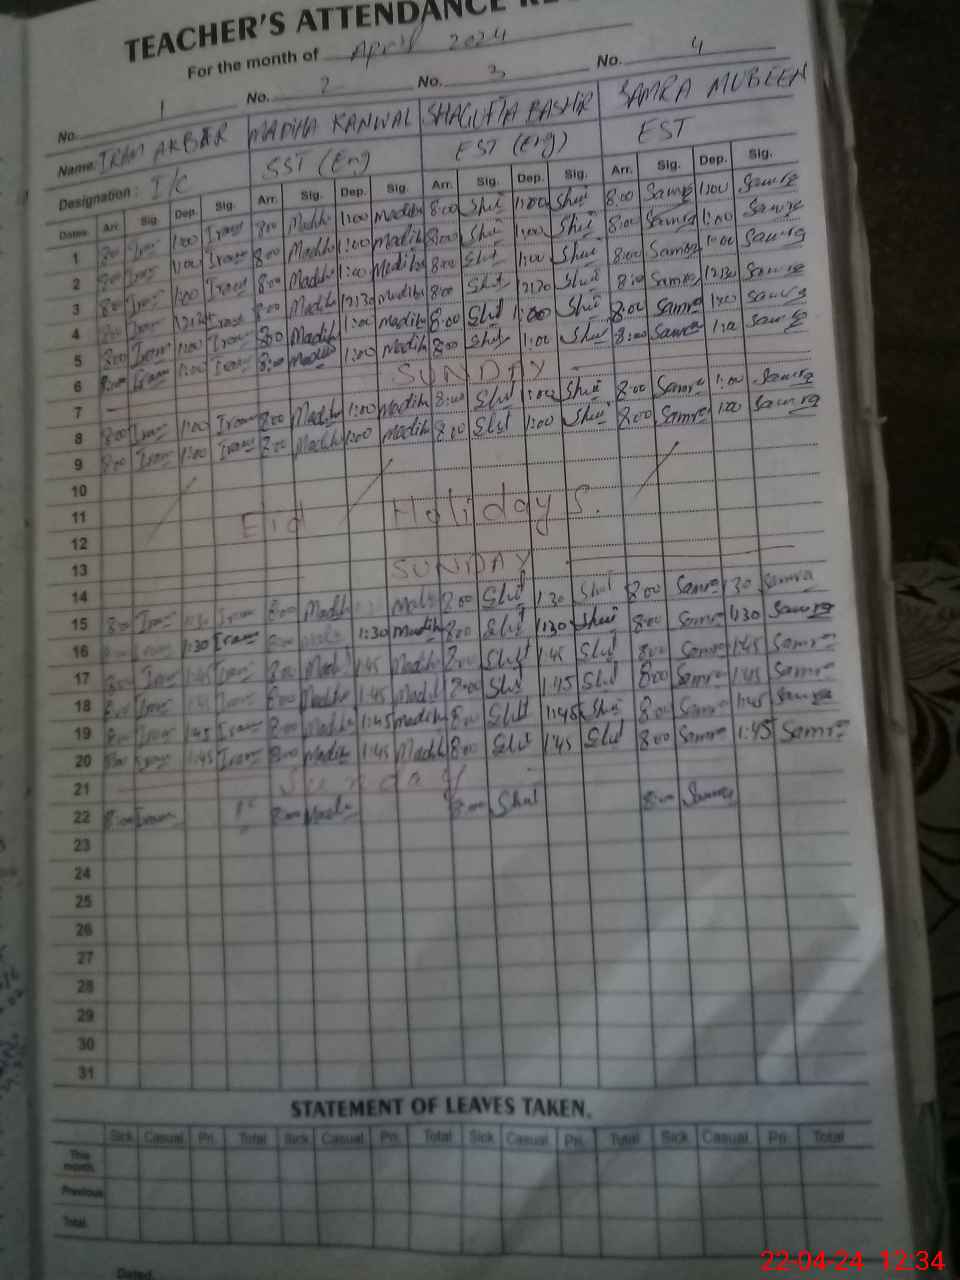 TEACHER'S ATTENDANCE RE
For the month of April 2024
No. 1 No. 2 No. 3 No. 4
Name: IRAM AKBAR MADIHA KANWAL SHAGUFTA BASHIR SAMRA MUBEEN
Designation: I/C SST (Eng EST (Eng) EST
Dates Arr. Sig. Dep. Sig. Arr. Sig. Dep. Sig. Arr. Sig. Dep. Sig. Arr. Sig. Dep. Sig.
1 8:00 Iram 1:00 Iram 8:00 Madiha 1:00 Madiha 8:00 1:00 8:00 Samra 1:00 Samra
2 8:00 Iram 1:00 Iram 8:00 Madiha 1:00 Madiha 8:00 1:00 8:00 Samra 1:00 Samra
3 8:00 Iram 1:00 Iram 8:00 Madiha 1:00 Madiha 8:00 1:00 8:00 Samra 1:00 Samra
4 8:00 Iram Iram 8:00 Madiha 12:30 Madiha 8:00 12:30 8:00 Samra 12:30 Samra
5 8:00 Iram 1:00 Iram 8:00 Madiha 1:00 Madiha 8:00 1:00 8:00 Samra 1:00 Samra
6 8:00 Iram 1:00 Iram 8:00 Madiha 1:00 Madiha 8:00 1:00 8:00 Samra 1:00 Samra
7 SUNDAY
8 8:00 Iram 1:00 Iram 8:00 Madiha 1:00 Madiha 8:00 1:00 8:00 Samra 1:00 Samra
9 8:00 Iram 1:00 Iram 8:00 Madiha 1:00 Madiha 8:00 1:00 8:00 Samra 1:00 Samra
10
11 Eid Holidays.
12
13
14 SUNDAY
15 8:00 Iram 1:30 Iram 8:00 Madiha Madiha 8:00 1:30 8:00 Samra 1:30 Samra
16 1:30 Iram 1:30 Madiha 8:00 1:30 8:00 Samra 1:30 Samra
17 8:00 Iram 1:45 Iram 8:00 Madiha 1:45 Madiha 8:00 1:45 8:00 Samra 1:45 Samra
18 8:00 Iram 1:45 Iram 8:00 Madiha 1:45 Madiha 8:00 1:45 8:00 Samra 1:45 Samra
19 8:00 Iram 1:45 Iram 8:00 Madiha 1:45 Madiha 8:00 1:45 8:00 Samra 1:45 Samra
20 8:00 Iram 1:45 Iram 8:00 Madiha 1:45 Madiha 8:00 1:45 8:00 Samra 1:45 Samra
21 Sunday
22 8:00 Iram 8:00 Madiha 8:00 8:00 Samra
23
24
25
26
27
28
29
30
31
STATEMENT OF LEAVES TAKEN.
Sick Casual Pri. Total Sick Casual Pri. Total Sick Casual Pri. Total Sick Casual Pri. Total
This month
Previous
Total
Dated.
22-04-24 12:34